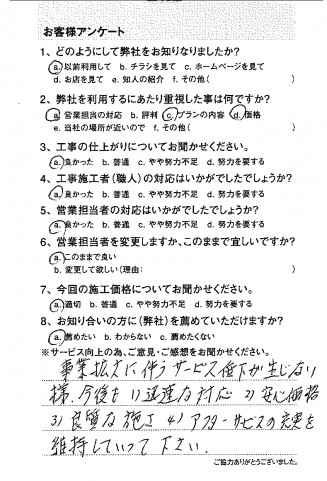 お客様アンケート
1、どのようにして弊社をお知りなりましたか?
a.以前利用して b.チラシを見て c.ホームページを見て
d.お店を見て e.知人の紹介 f.その他( )
2、弊社を利用するにあたり重視した事は何ですか?
a.営業担当の対応 b.評判 c.プランの内容 d.価格
e.当社の場所が近いので f.その他( )
3、工事の仕上がりについてお聞かせください。
a.良かった b.普通 c.やや努力不足 d.努力を要する
4、工事施工者(職人)の対応はいかがでしたでしょうか?
a.良かった b.普通 c.やや努力不足 d.努力を要する
5、営業担当者の対応はいかがでしたでしょうか?
a.良かった b.普通 c.やや努力不足 d.努力を要する
6、営業担当者を変更しますか、このままで宜しいですか?
a.このままで良い
b.変更して欲しい(理由: )
7、今回の施工価格についてお聞かせください。
a.適切 b.普通 c.やや努力不足 d.努力を要する
8、お知り合いの方に(弊社)を薦めていただけますか?
a.薦めたい b.わからない c.薦めたくない
※サービス向上の為、ご意見・ご感想をお聞かせください。
事業拡大に伴うサービス低下が生じない
様、今後も 1)迅速な対応 2)安心価格
3)良質な施工 4)アフターサービスの充実を
維持していって下さい.
ご協力ありがとうございました。